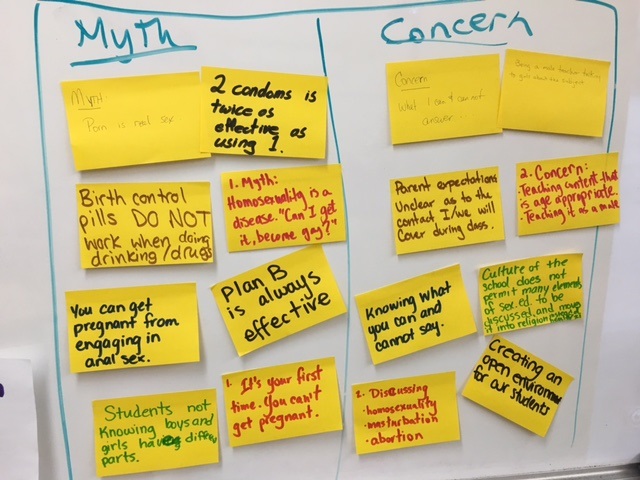 Myth
Myth:
Porn is real sex
2 condoms is
twice as
effective as
using 1.
Birth control
pills DO NOT
work when doing
drinking/drugs
1. Myth:
Homosexuality is a
disease. "Can I get
it, become gay?"
You can get
pregnant from
engaging in
anal sex.
Plan B
is always
effective
Students not
Knowing boys and
girls having differe
parts.
1. It's your first
time. You can't
get pregnant.
Concern
Concern:
What I can & can not
answer.
Being a male teacher talking
to girls about
Parent expectations
Unclear as to the
contact I/we will
Cover during class.
2. Concern:
· Teaching content that
is age appropriate.
· Teaching it as a male
Knowing what
you can and
cannot say.
Culture of the
school does not
permit many elements
of sex.ed. to be
discussed and moves
it into religion
2. Discussing
· homosexuality
· masturbation
· abortion
Creating an
open environme
for our students